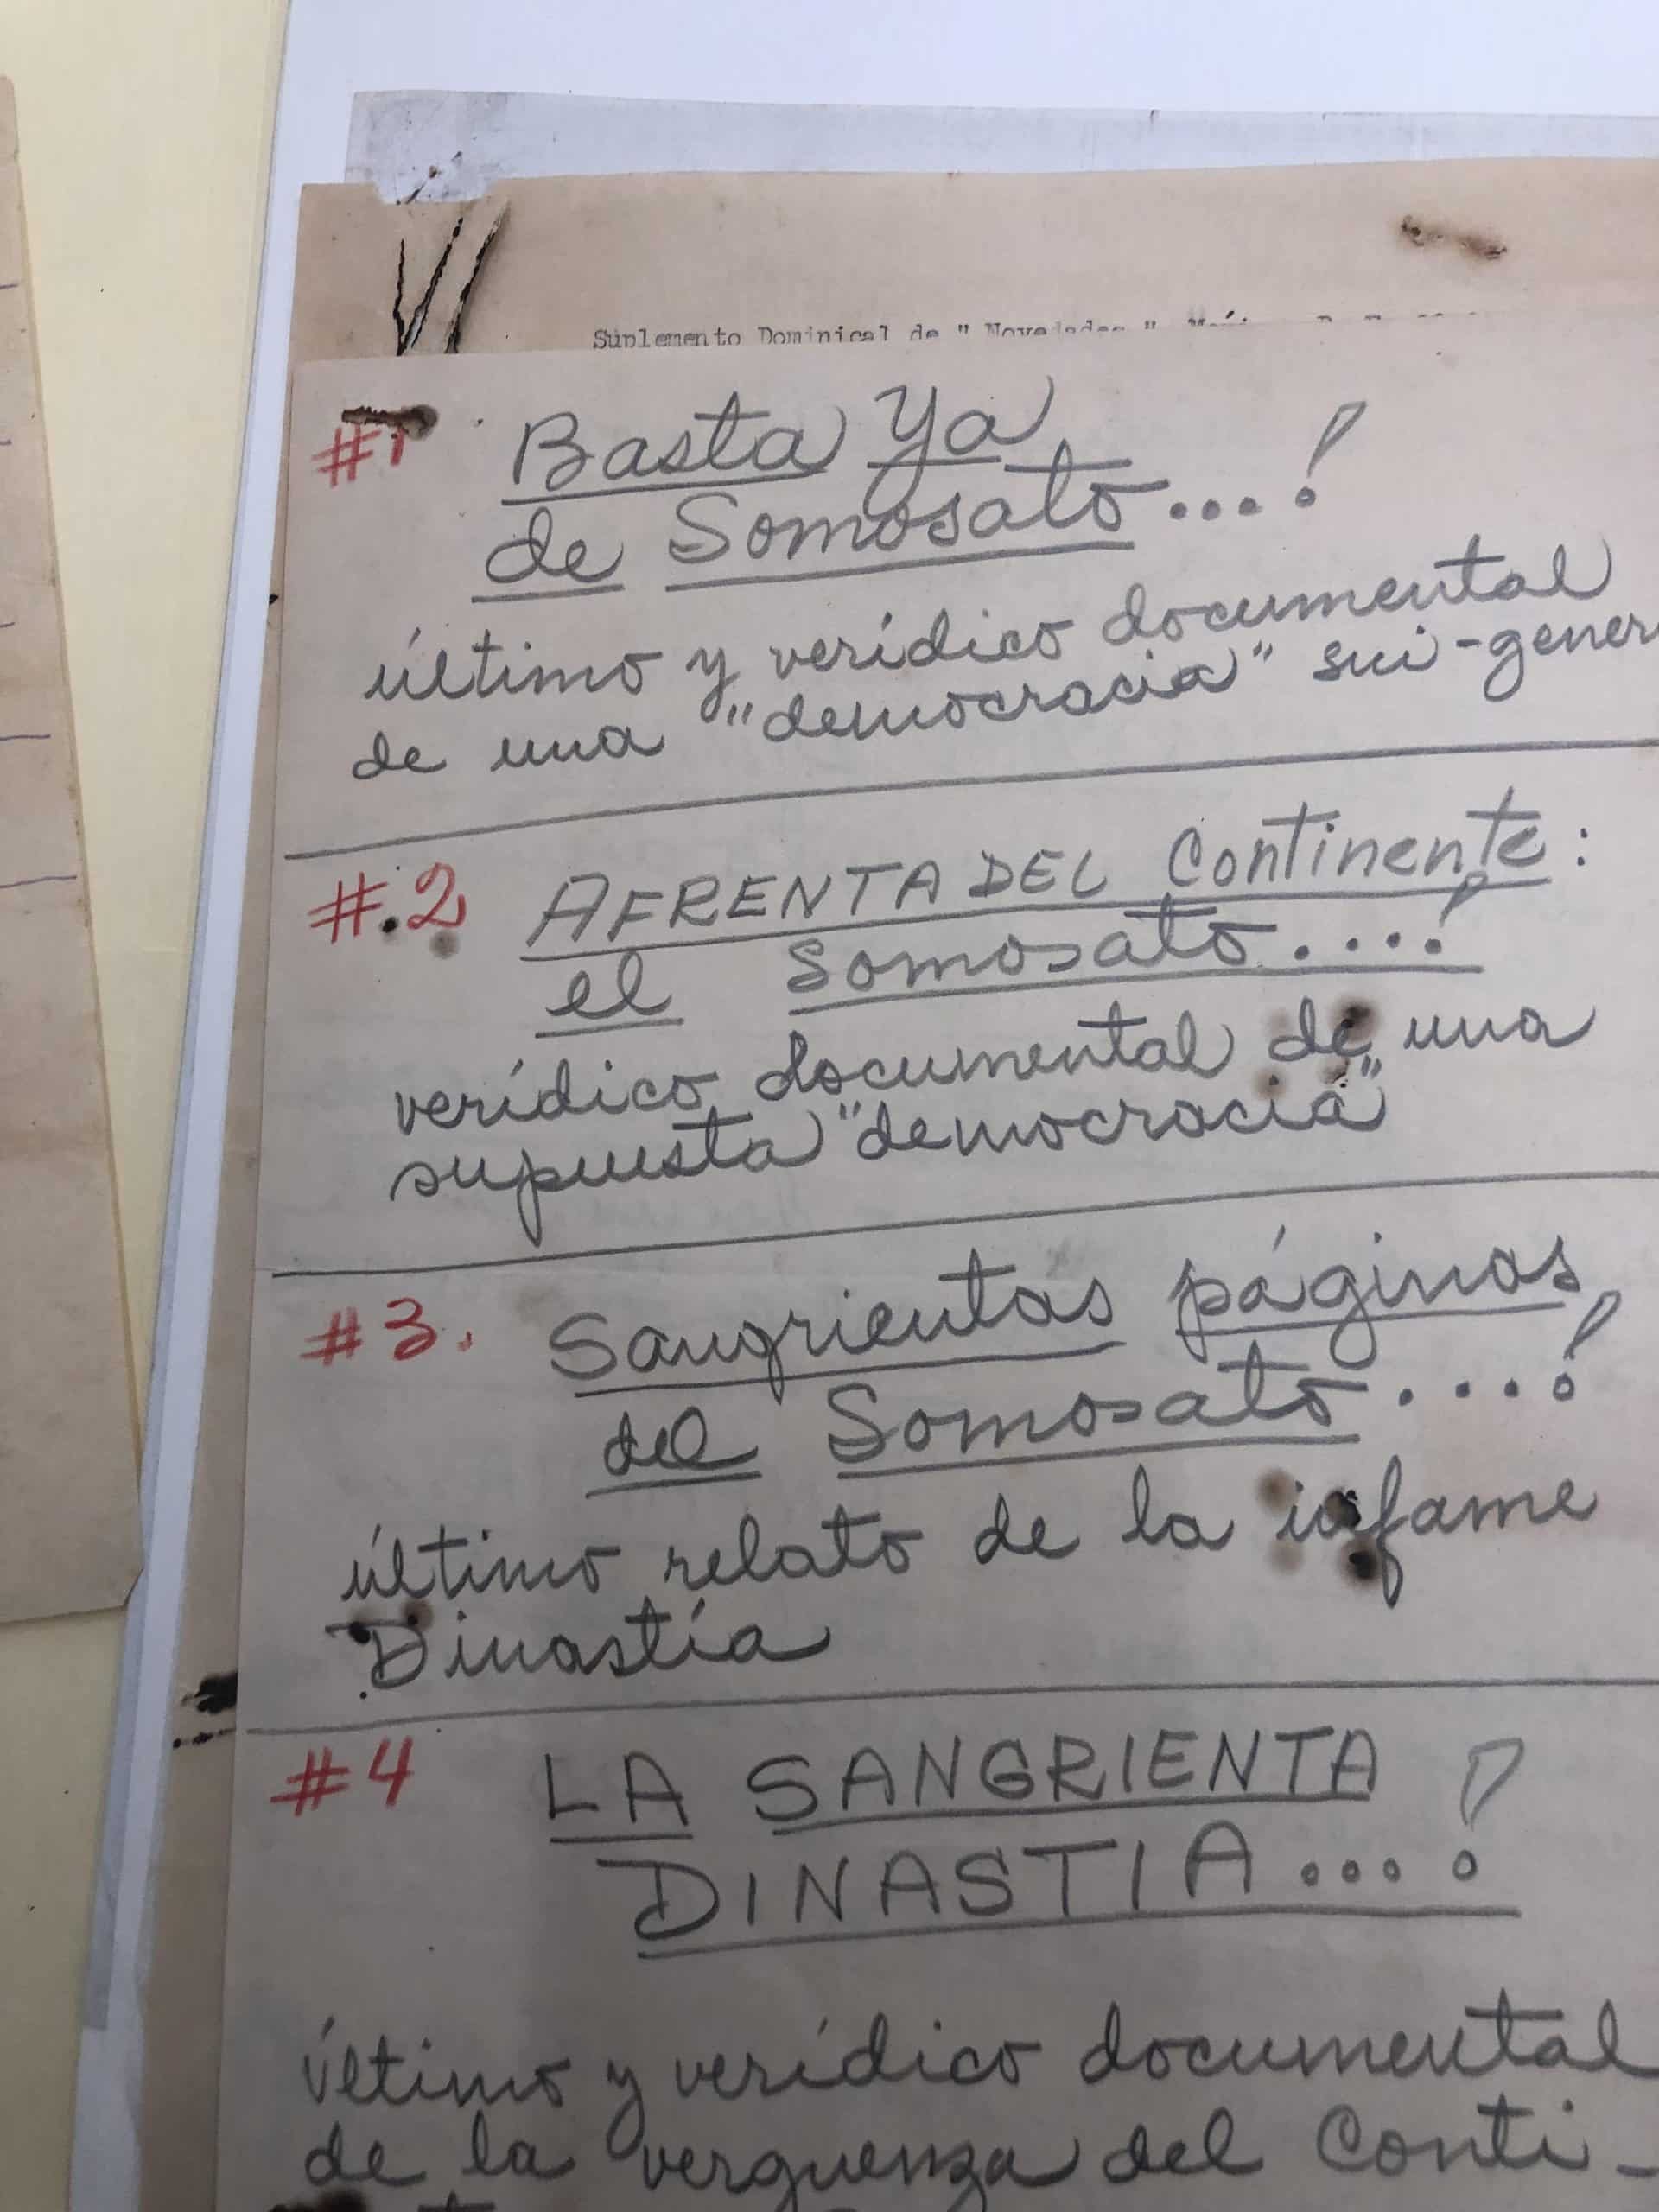 Suplemento Dominical de " Novedades "
#1 Basta Ya
de Somosato...!
último y verídico documental
de una "democracia" sui-gener
#.2 AFRENTA DEL Continente:
el Somosato....!
verídico documental de una
supuesta "democracia"
#3. Sangrientas páginas
del Somosato....!
último relato de la infame
Dinastía
#4 LA SANGRIENTA
DINASTIA...!
último y verídico documental
de la verguenza del Conti-